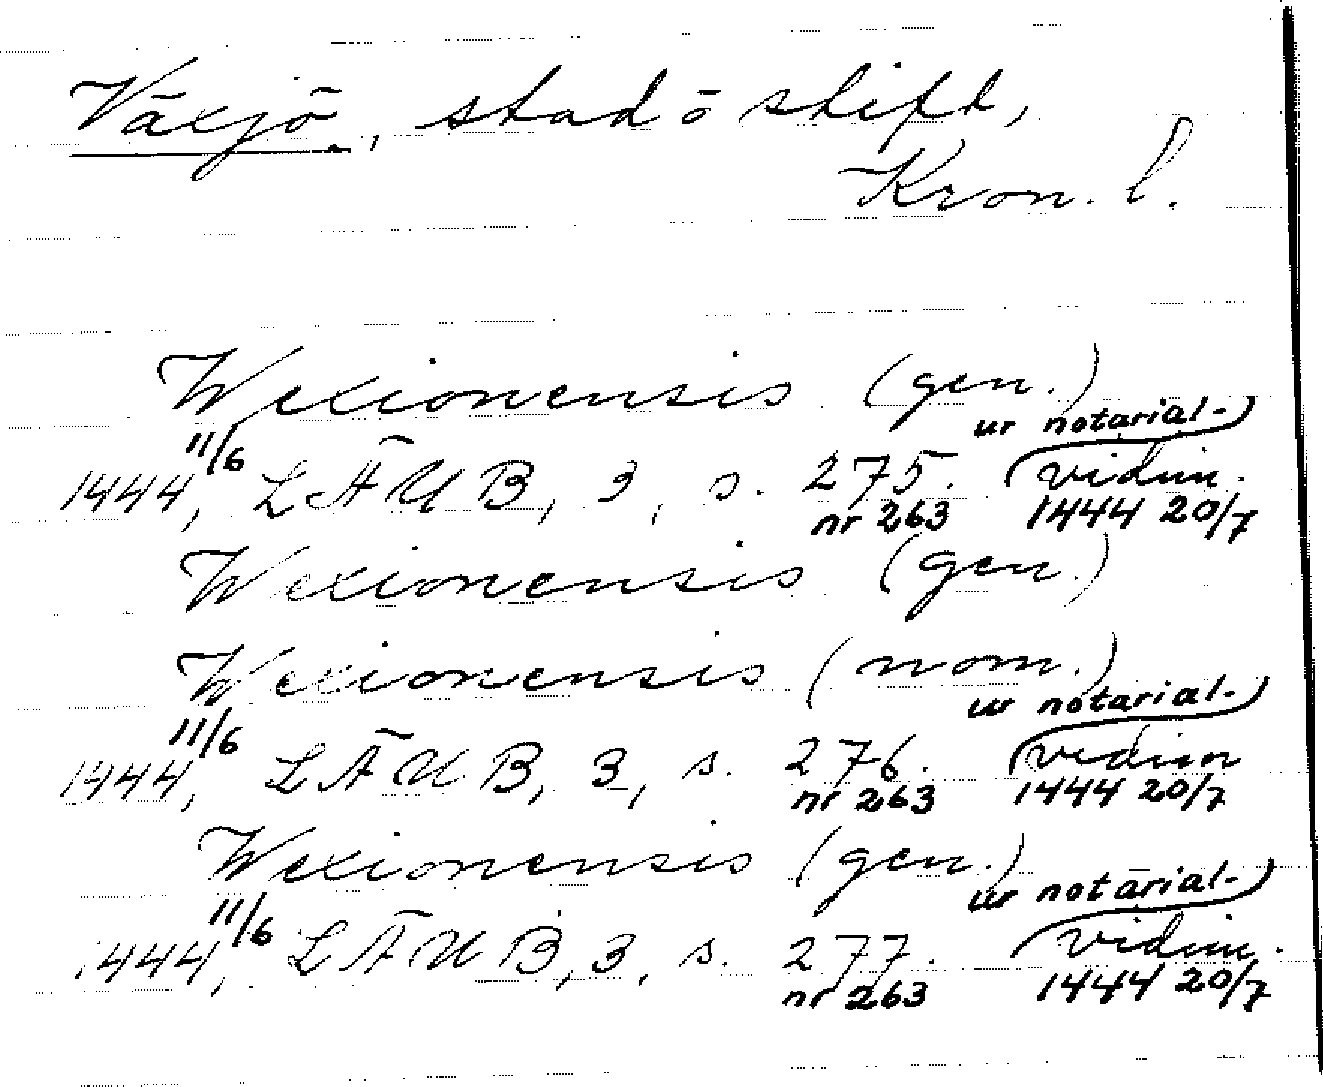 Växjö, stad o stift,
Kron. l.
Wexionensis (gen.)
ur notarial-
1444 11/6, LÄUB, 3, s. 275. vidim.
nr 263 1444 20/7
Wexionensis (gen.)
Wexionensis (nom.)
ur notarial-
1444 11/6, LÄUB, 3, s. 276. vidim
nr 263 1444 20/7
Wexionensis (gen.)
ur notarial-
1444 11/6, LÄUB, 3, s. 277. vidim.
nr 263 1444 20/7